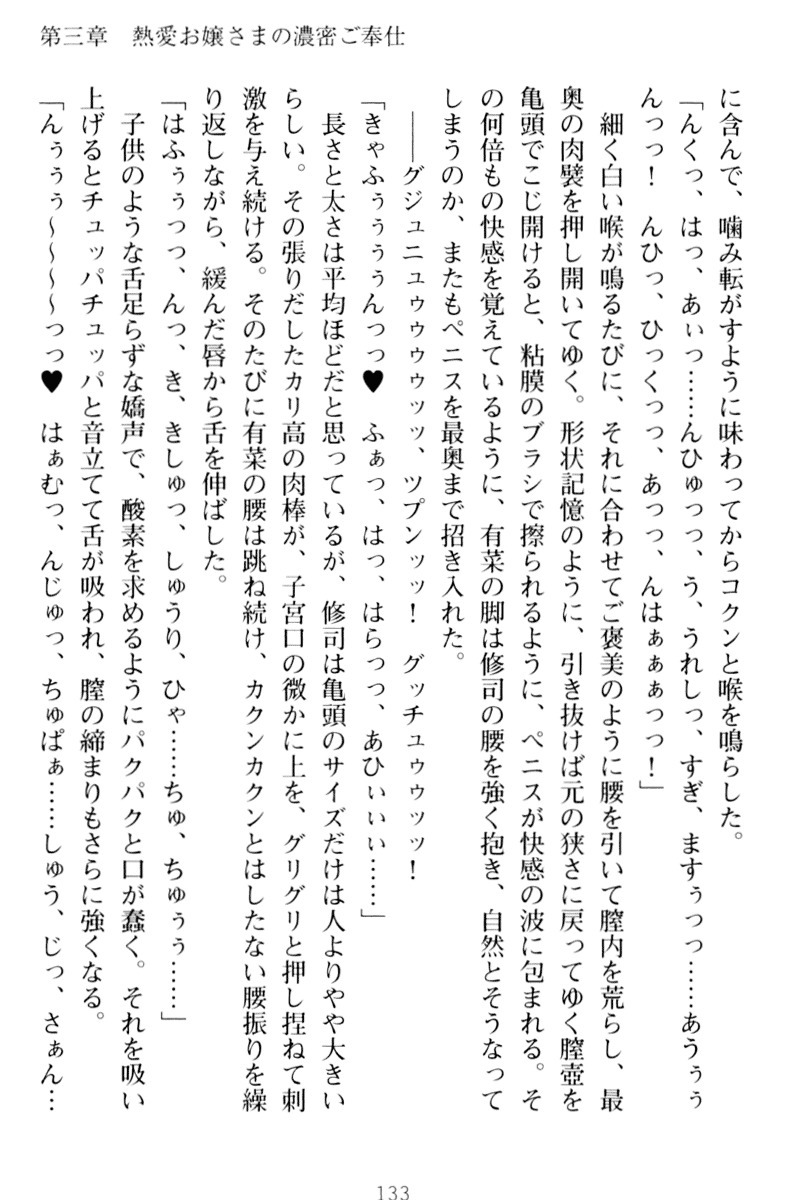 第三章　熱愛お嬢さまの濃密ご奉仕
に含んで、噛み転がすように味わってからコクンと喉を鳴らした。
「んくっ、はっ、あぃっ……んひゅっっ、う、うれしっ、すぎ、ますぅっっ……あうぅぅ
んっっ！　んひっ、ひっくっっ、あっっ、んはぁぁぁっっ！」
細く白い喉が鳴るたびに、それに合わせてご褒美のように腰を引いて膣内を荒らし、最
奥の肉襞を押し開いてゆく。形状記憶のように、引き抜けば元の狭さに戻ってゆく膣壺を
亀頭でこじ開けると、粘膜のブラシで擦られるように、ペニスが快感の波に包まれる。そ
の何倍もの快感を覚えているように、有菜の脚は修司の腰を強く抱き、自然とそうなって
しまうのか、またもペニスを最奥まで招き入れた。
――グジュニュゥゥゥゥッッ、ツプンッッ！　グッチュゥゥッッ！
「きゃふぅぅぅんっっ♥　ふぁっ、はっ、はらっっ、あひぃぃぃ……」
長さと太さは平均ほどだと思っているが、修司は亀頭のサイズだけは人よりやや大きい
らしい。その張りだしたカリ高の肉棒が、子宮口の微かに上を、グリグリと押し捏ねて刺
激を与え続ける。そのたびに有菜の腰は跳ね続け、カクンカクンとはしたない腰振りを繰
り返しながら、緩んだ唇から舌を伸ばした。
「はふぅぅっっ、んっ、き、きしゅっ、しゅうり、ひゃ……ちゅ、ちゅぅぅ……」
子供のような舌足らずな嬌声で、酸素を求めるようにパクパクと口が蠢く。それを吸い
上げるとチュッパチュッパと音立てて舌が吸われ、膣の締まりもさらに強くなる。
「んぅぅぅ～～～～っっ♥　はぁむっ、んじゅっ、ちゅぱぁ……しゅう、じっ、さぁん…
133